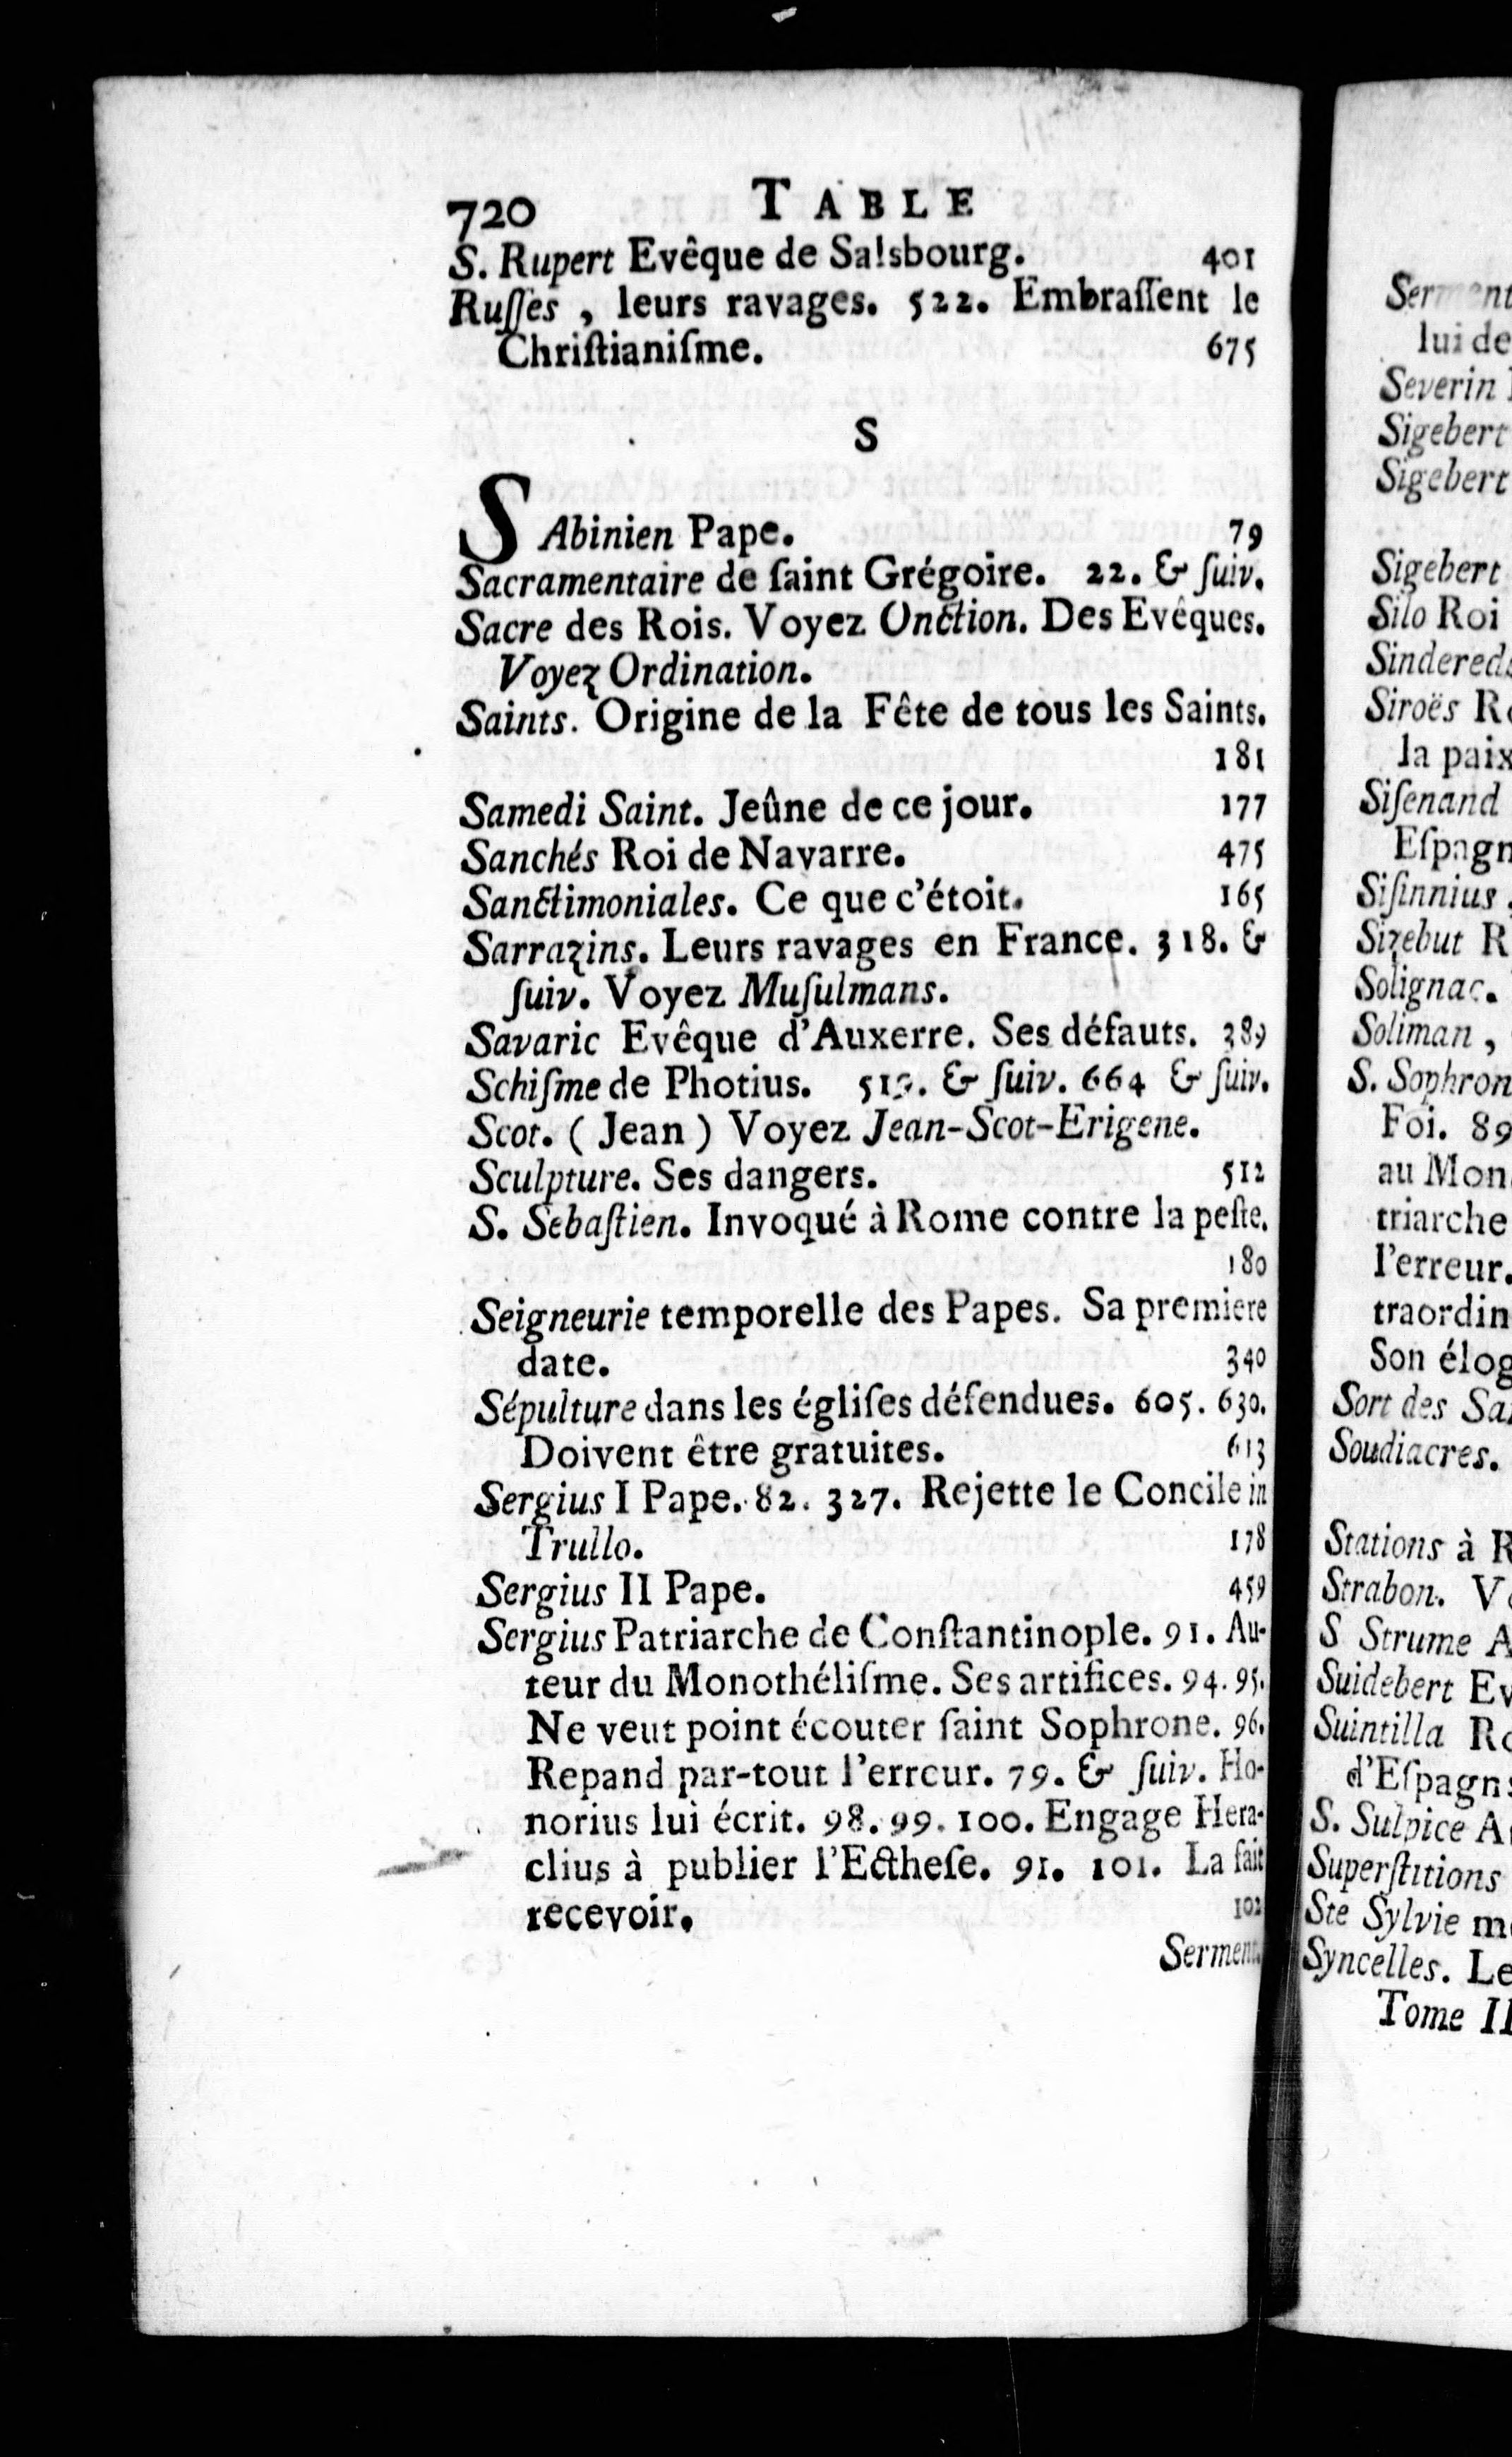 720 TABLE
S. Rupert Evêque de Salsbourg. 401
Ruſſes , leurs ravages. 522. Embraſſent le
Chriſtianiſme. 675
S
SAbinien Pape. 79
Sacramentaire de ſaint Grégoire. 22. & ſuiv.
Sacre des Rois. Voyez Onction. Des Evêques.
Voyez Ordination.
Saints. Origine de la Fête de tous les Saints.
181
Samedi Saint. Jeûne de ce jour. 177
Sanchés Roi de Navarre. 475
Sanctimoniales. Ce que c'étoit. 165
Sarrazins. Leurs ravages en France. 318. &
ſuiv. Voyez Muſulmans.
Savaric Evêque d'Auxerre. Ses défauts. 389
Schiſme de Photius. & ſuiv. 664 & ſuiv.
Scot. ( Jean ) Voyez Jean-Scot-Erigene.
Sculpture. Ses dangers. 512
S. Sebaſtien. Invoqué à Rome contre la peſte.
180
Seigneurie temporelle des Papes. Sa premiere
date. 340
Sépulture dans les égliſes défendues. 605. 630.
Doivent être gratuites. 613
Sergius I Pape. 82. 327. Rejette le Concile in
Trullo. 178
Sergius II Pape. 459
Sergius Patriarche de Conſtantinople. 91. Au-
teur du Monothéliſme. Ses artifices. 94. 95.
Ne veut point écouter ſaint Sophrone. 96.
Repand par-tout l'erreur. 79. & ſuiv. Ho-
norius lui écrit. 98. 99. 100. Engage Hera-
clius à publier l'Ectheſe. 91. 101. La fait
recevoir. 102
Serment.
lui de
Severin
Sigebert
Sigebert
Sigebert
Silo Roi
Sindereds
Siroës
la paix
Siſenand
Eſpagn
Siſinnius
Sizebut R
Solignac.
Soliman ,
S. Sophron
Foi. 89
au Mon
triarche
l'erreur.
traordin
Son élog
Sort des Sa
Soudiacres.
Stations à R
Strabon. V
S Strume A
Suidebert Ev
Suintilla Ro
d'Eſpagn
S. Sulpice A
Superſtitions
Ste Sylvie m
Syncelles. Le
Tome II